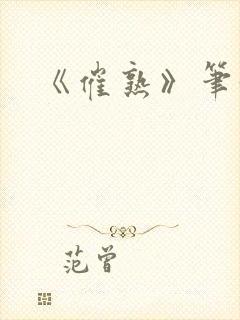 《催熟》筆
范曾